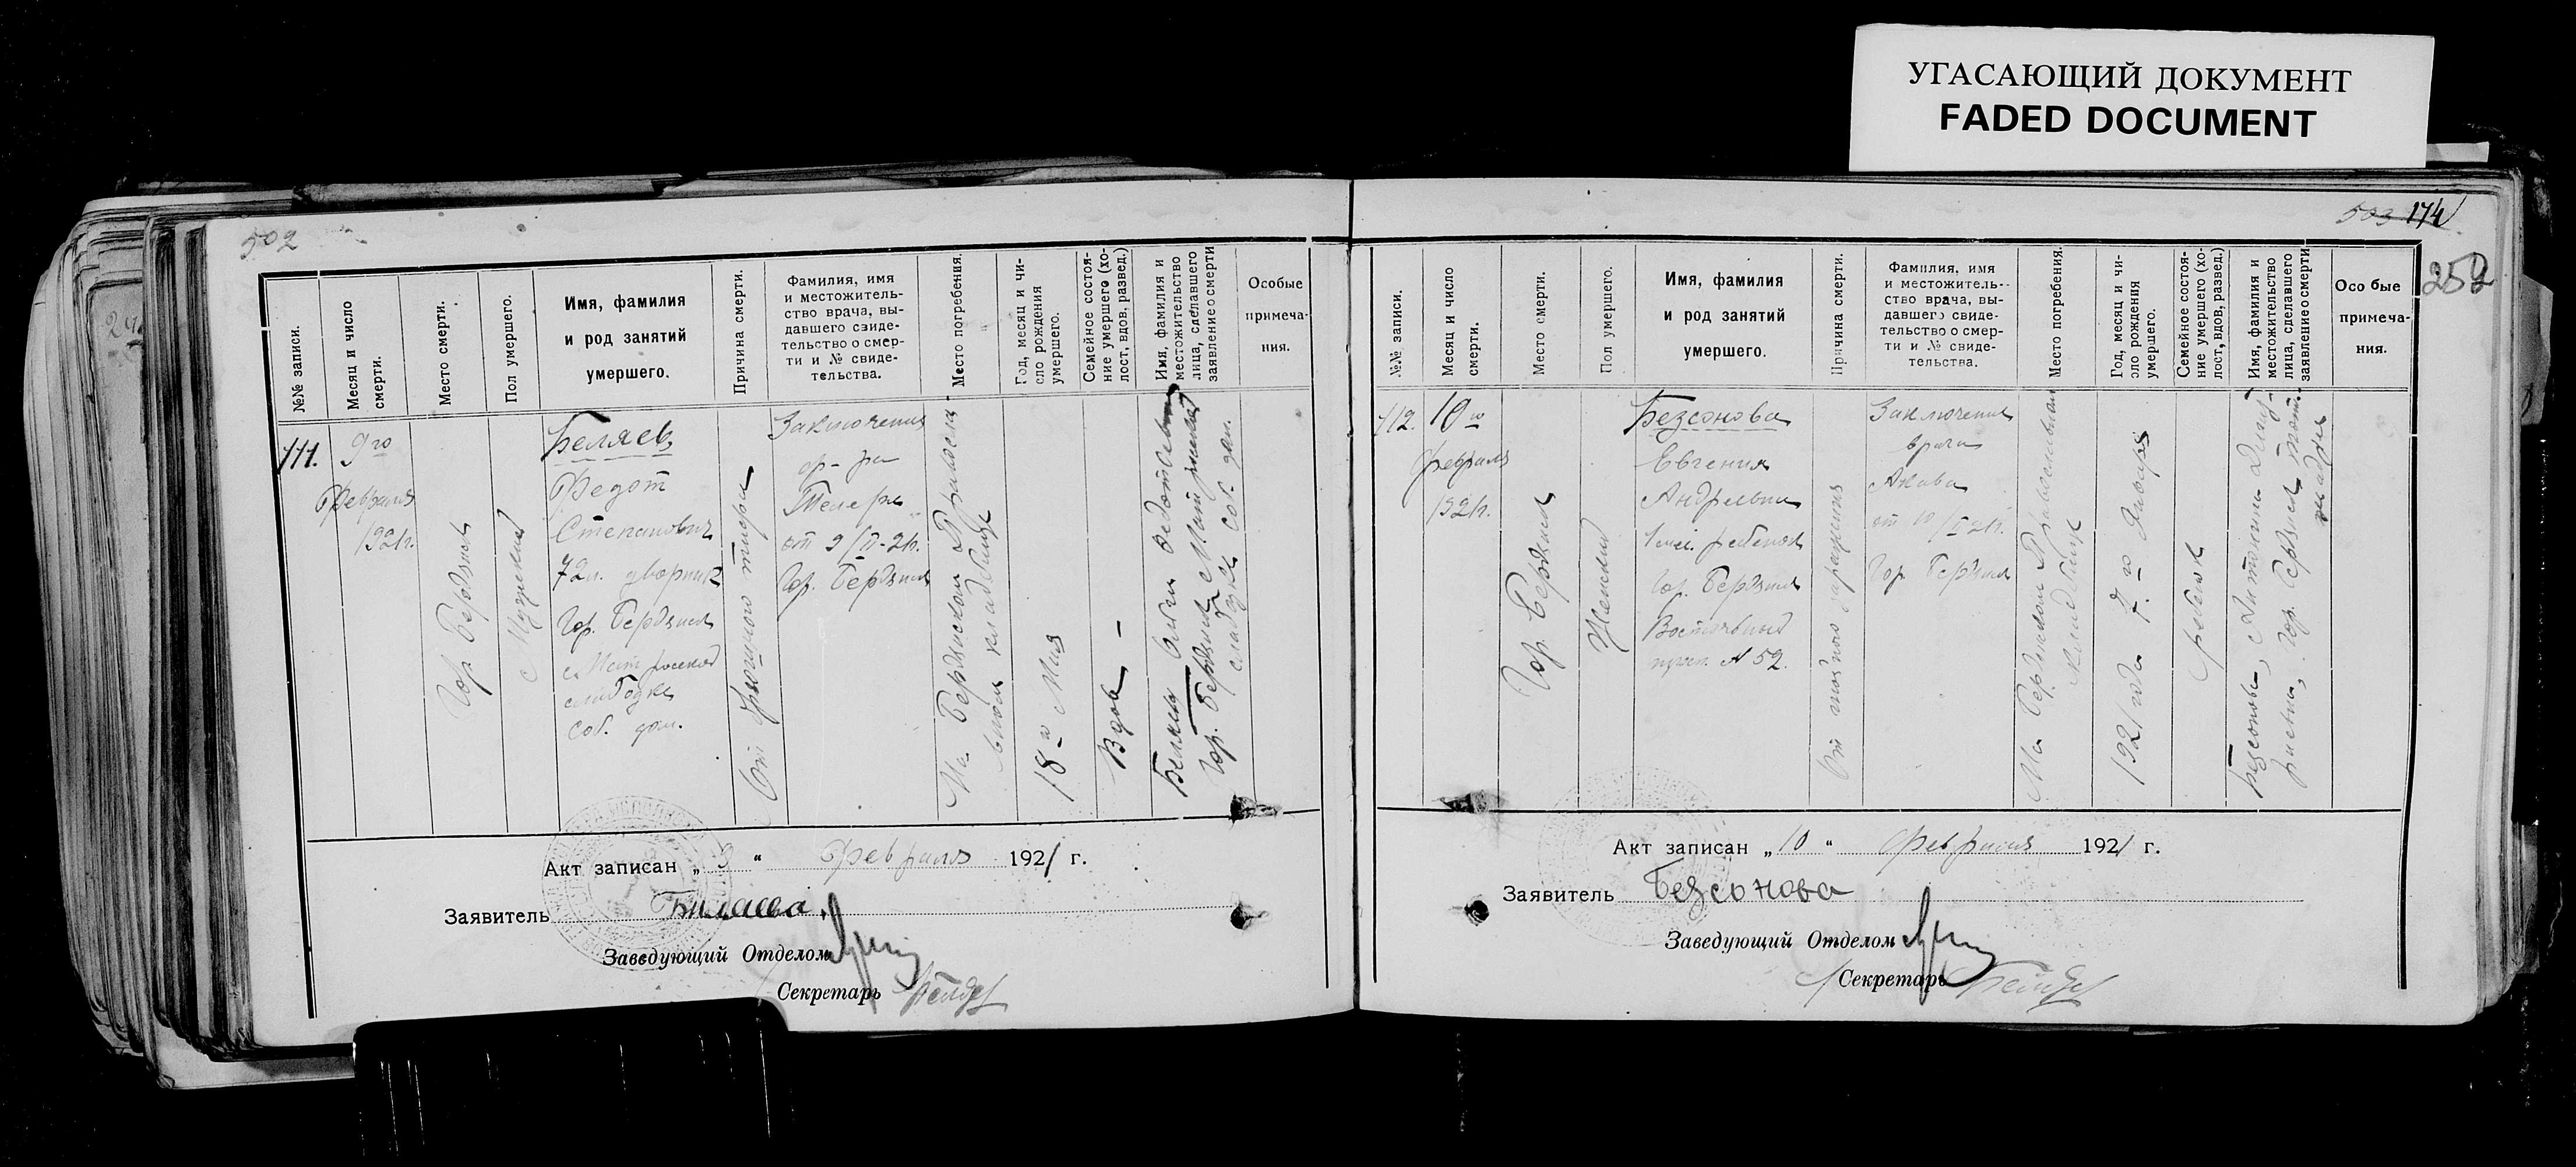 УГАСАЮЩИЙ ДОКУМЕНТ
FADED DOCUMENT
502
№№ записи.
Месяц и число
смерти.
Место смерти.
Пол умершего.
Имя, фамилия
и род занятий
умершего.
Причина смерти.
Фамилия, имя
и местожитель-
ство врача, вы-
давшего свиде-
тельство о смер-
ти и № свиде-
тельства.
Место погребения.
Год, месяц и чи-
сло рождения
умершего.
Семейное состоя-
ние умершего (хо-
лост, вдов, развед.)
Имя, фамилия и
местожительство
лица, сделавшего
заявление о смерти
Особые
примеча-
ния.
111.
9го
Февраля
1921г.
Гор. Бердянск
Мужской
Беляев
Федот
Степанович
72л. дворник
Гор. Бердянск
Матросская
слободка
соб. дом.
От
тифа
Заключение
д-ра
от 9/II-21г.
Гор. Бердянск
На Бердянском Православ-
кладбище
18го Мая
Вдов
Гор. Бердянск
соб. дом.
Акт записан „9“ Февраля 1921 г.
Заявитель Биляева
Заведующий Отделом
Секретарь
503 174
252
№№ записи.
Месяц и число
смерти.
Место смерти.
Пол умершего.
Имя, фамилия
и род занятий
умершего.
Причина смерти.
Фамилия, имя
и местожитель-
ство врача, вы-
давшего свиде-
тельство о смер-
ти и № свиде-
тельства.
Место погребения.
Год, месяц и чи-
сло рождения
умершего.
Семейное состоя-
ние умершего (хо-
лост, вдов, развед.)
Имя, фамилия и
местожительство
лица, сделавшего
заявление о смерти
Особые
примеча-
ния.
112.
10го
февраля
1921г.
Гор. Бердянск
Женский
Безсонова
Евгения
Андреевна
1 мес. ребенок
Гор. Бердянск
Восточный
просп. № 52.
От гнойного заражения
Заключение
врача
от 10/II 21г.
Гор. Бердянск
На Бердянском Православном
кладбище
1921 года 7го Января
ребенок
Безсонова,
гор. Бердянск
Акт записан „10“ Февраля 1921 г.
Заявитель Безсонова
Заведующий Отделом
Секретарь